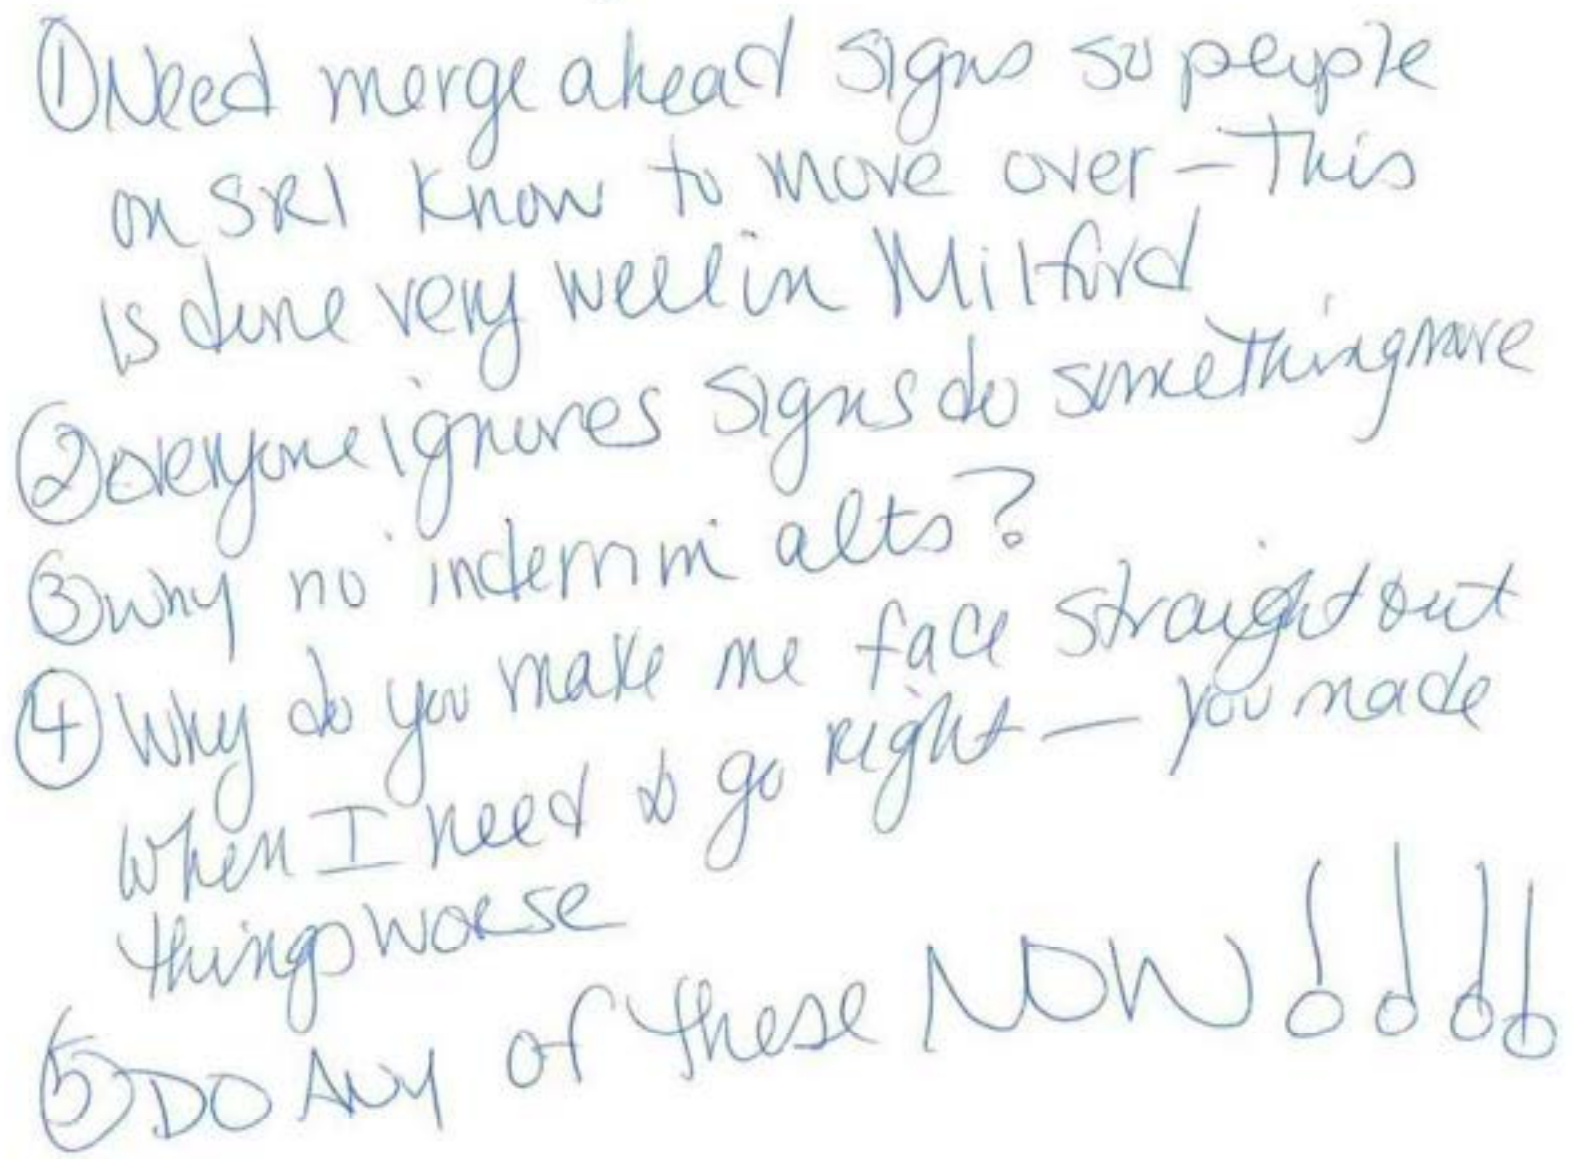 ① Need merge ahead signs so people
on SR1 know to move over - This
is done very well in Milford
② everyone ignores signs do something more
③ why no interim alts?
④ Why do you make me face straight out
when I need to go right — you made
things worse
⑤ DO ANY of these NOW!!!!